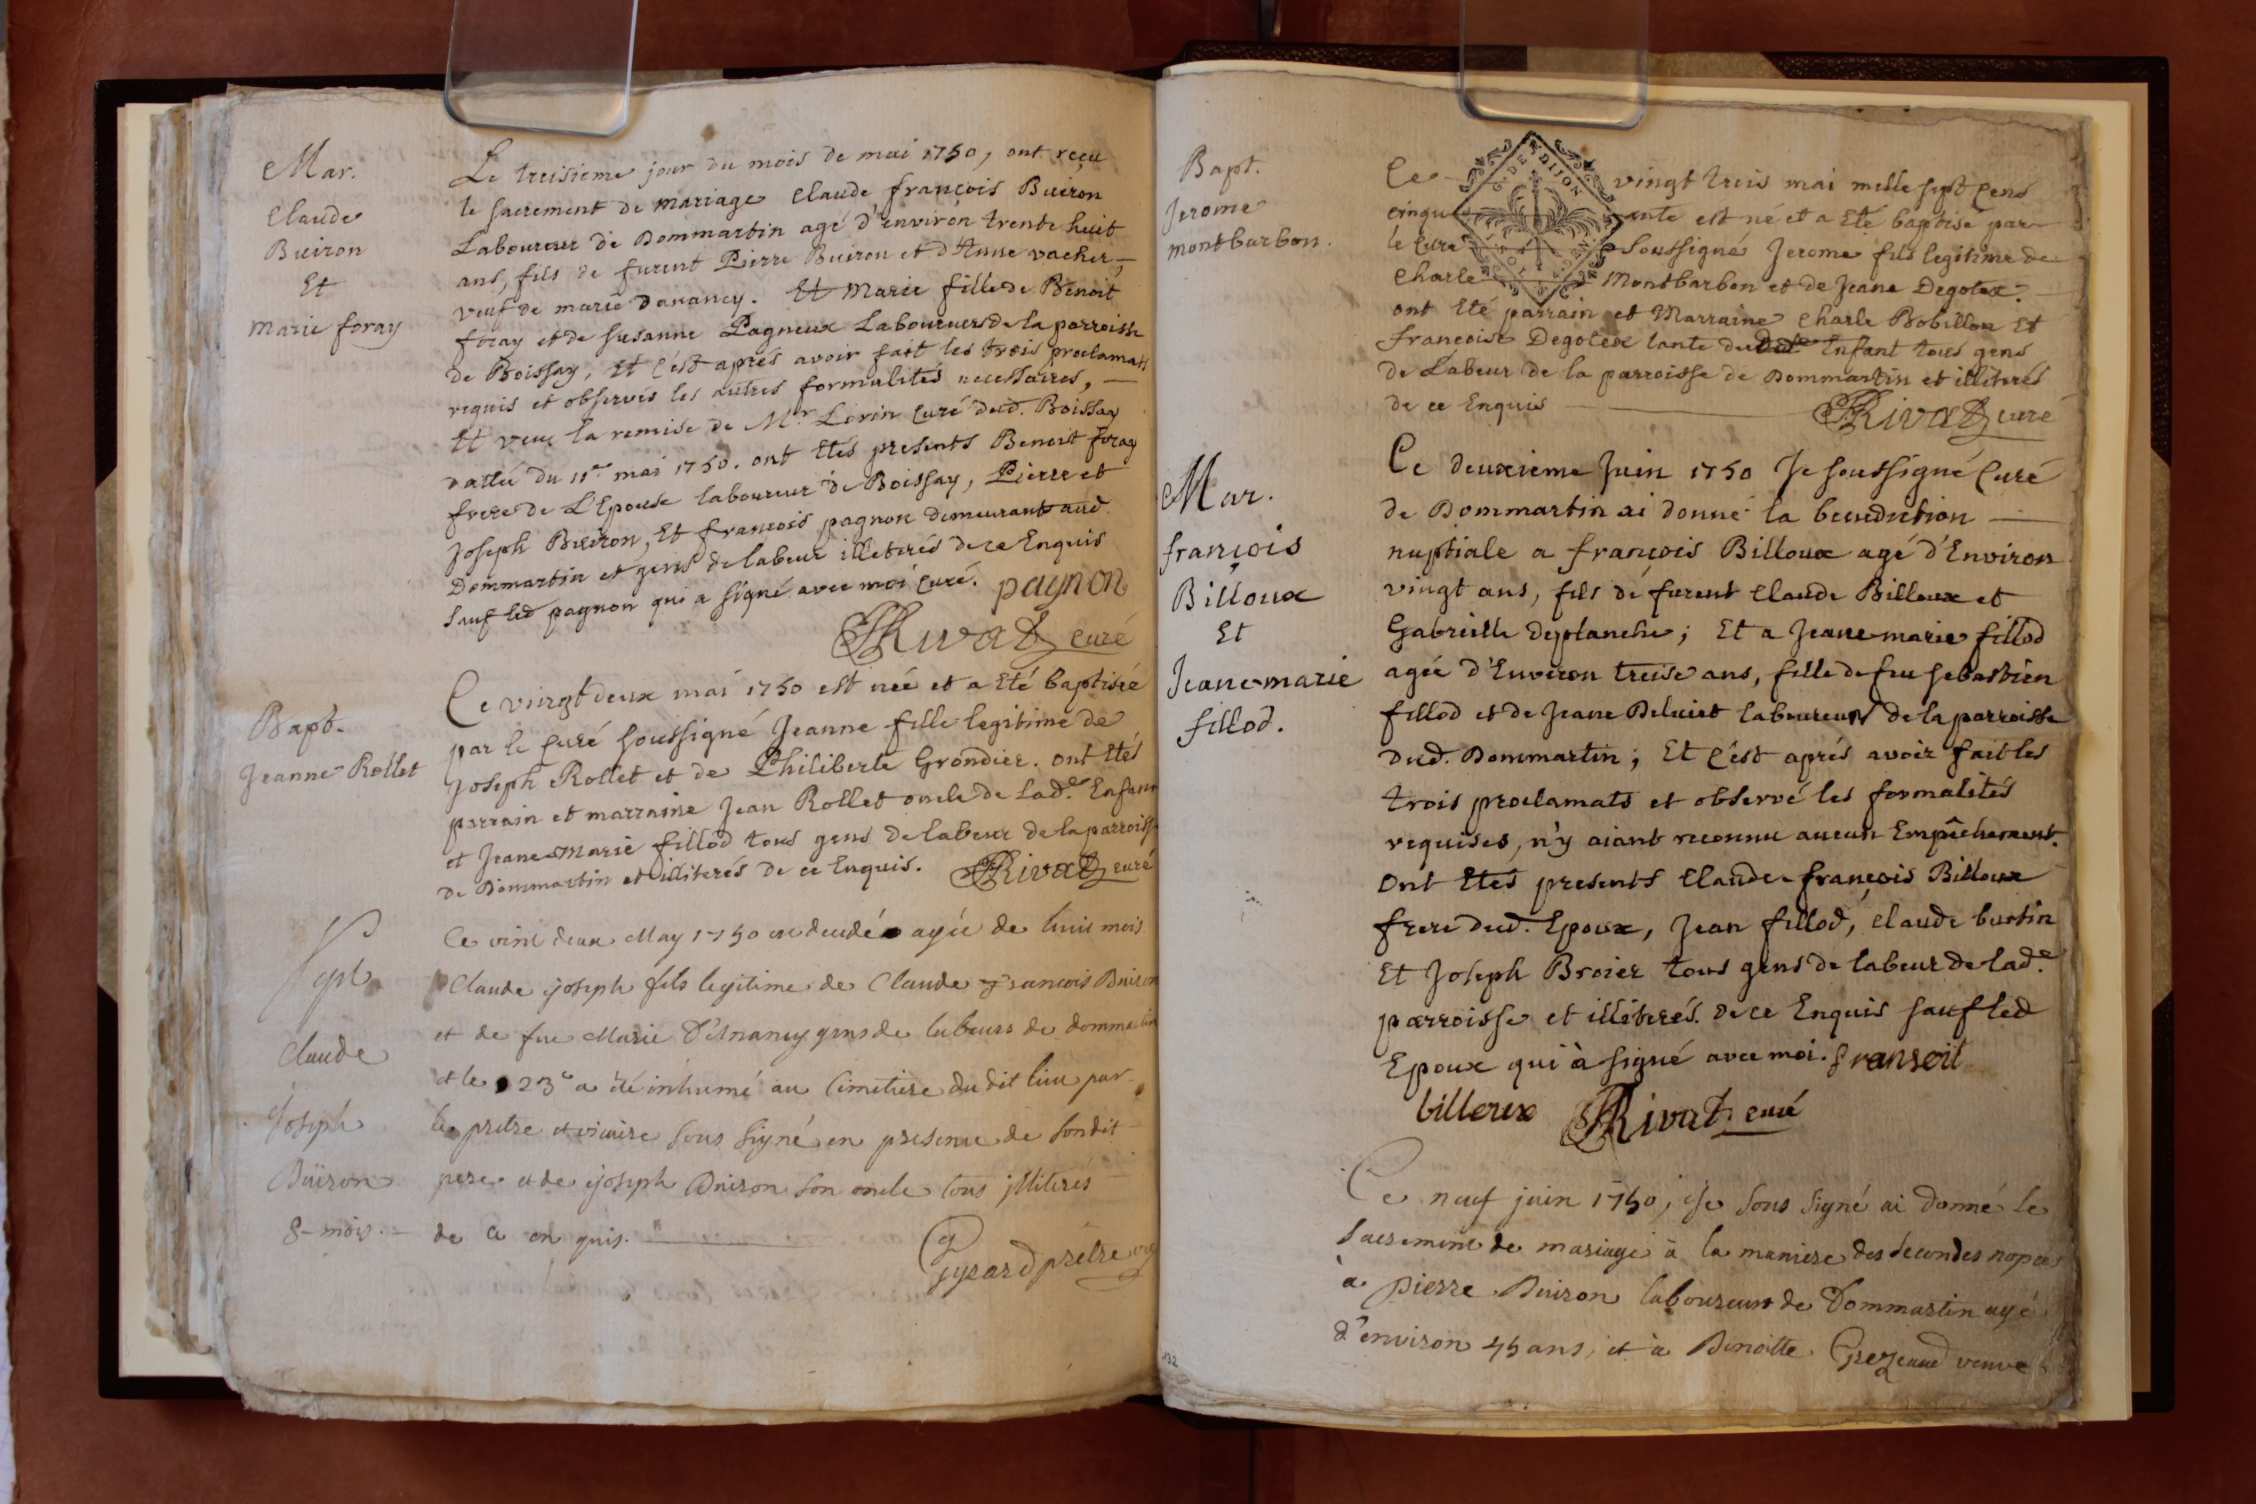 Mar.
Claude
Buiron
Et
Marie foray
Le treisieme jour du mois de mai 1750, ont reçu
le sacrement de mariage Claude françois Buiron
Laboureur de Dommartin agé d'environ trente huit
ans, fils de furent Pierre Buiron et d'Anne vacher,
veuf de marie Danancy. Et Marie fille de Benoit
foray et de Susanne Pagneux Laboureurs de la parroisse
de Boissay, Et c'est aprés avoir fait les trois proclamats
requis et observés les autres formalités necessaires,
Et veue la remise de Mr. Lorin Curé dud. Boissay
dattée du 11e mai 1750. ont Etés presents Benoit foray
frere de L'Epouse laboureur de Boissay, Pierre et
Joseph Buiron, Et françois pagnon demeurants aud.
Dommartin et gens de labeur illeterés de ce Enquis
sauf led pagnon qui a signé avec moi Curé. pagnon
Rivat curé
Bapt.
Jeanne Rollet
Ce vingt deux mai 1750 est née et a Eté baptisée
par le Curé soussigné Jeanne fille legitime de
Joseph Rollet et de Philiberte Grondier. ont Etés
parrain et marraine Jean Rollet oncle de lad.e Enfant
et Jeane Marie fillod tous gens de labeur de la parroisse
de Dommartin et illiterés de ce Enquis. Rivat curé
Sept
Claude
Joseph
Buiron
8 mois.
Ce vint deux May 1750 est decedé agée de huit mois
Claude joseph fils legitime de Claude François Buiron
et de fue Marie D'Anancy gens de labeurs de dommartin
et le 23e a été inhumé au Cimetiere du dit lieu par
le pretre et vicaire sous signé en presence de son dit
pere et de joseph Buiron son oncle tous jlliterés
de ce en quis.
Gyrard prétre vic
Bapt.
Jerome
montbarbon.
G. DE DIJON
Ce vingt trois mai mille sept Cens
cinquante est né et a Eté baptisé par
le Curé Soussigné Jerome fils legitime de
Charle Montbarbon et de Jeane Degoles.
ont Eté parrain et Marraine Charle Bobillon Et
francoise Degoles tante dudit Enfant tous gens
de Labeur de la parroisse de Dommartin et illiterés
de ce Enquis Rivat curé
Mar.
françois
Billoux
Et
Jeane-marie
fillod.
Ce deuxieme Juin 1750 Je soussigné Curé
de Dommartin ai donné la benediction
nuptiale a françois Billoux agé d'Environ
vingt ans, fils de furent Claude Billoux et
Gabrielle Deplanche; Et a Jeane marie fillod
agée d'Environ treise ans, fille de feu Sebastien
fillod et de Jeane Beluiet laboureurs de la parroisse
dud. Dommartin; Et c'est aprés avoir fait les
trois proclamats et observé les formalités
requises, n'y aiant reconnu aucun Empêchement.
Ont Etes presents Claude-françois Billoux
frere dud. Epoux, Jean fillod, Claude burtin
Et Joseph Broier tous gens de labeur de lad.e
parroisse et illiterés. de ce Enquis sauf led
Epoux qui à signé avec moi. fransoit
billoux Rivat. curé
Ce neuf juin 1750, je sous signé ai donné le
sacrement de mariage à la maniere des secondes nopces
à Pierre Buiron laboureur de Dommartin agé
d'environ 45 ans, et à Benoitte Grezeaud veuve